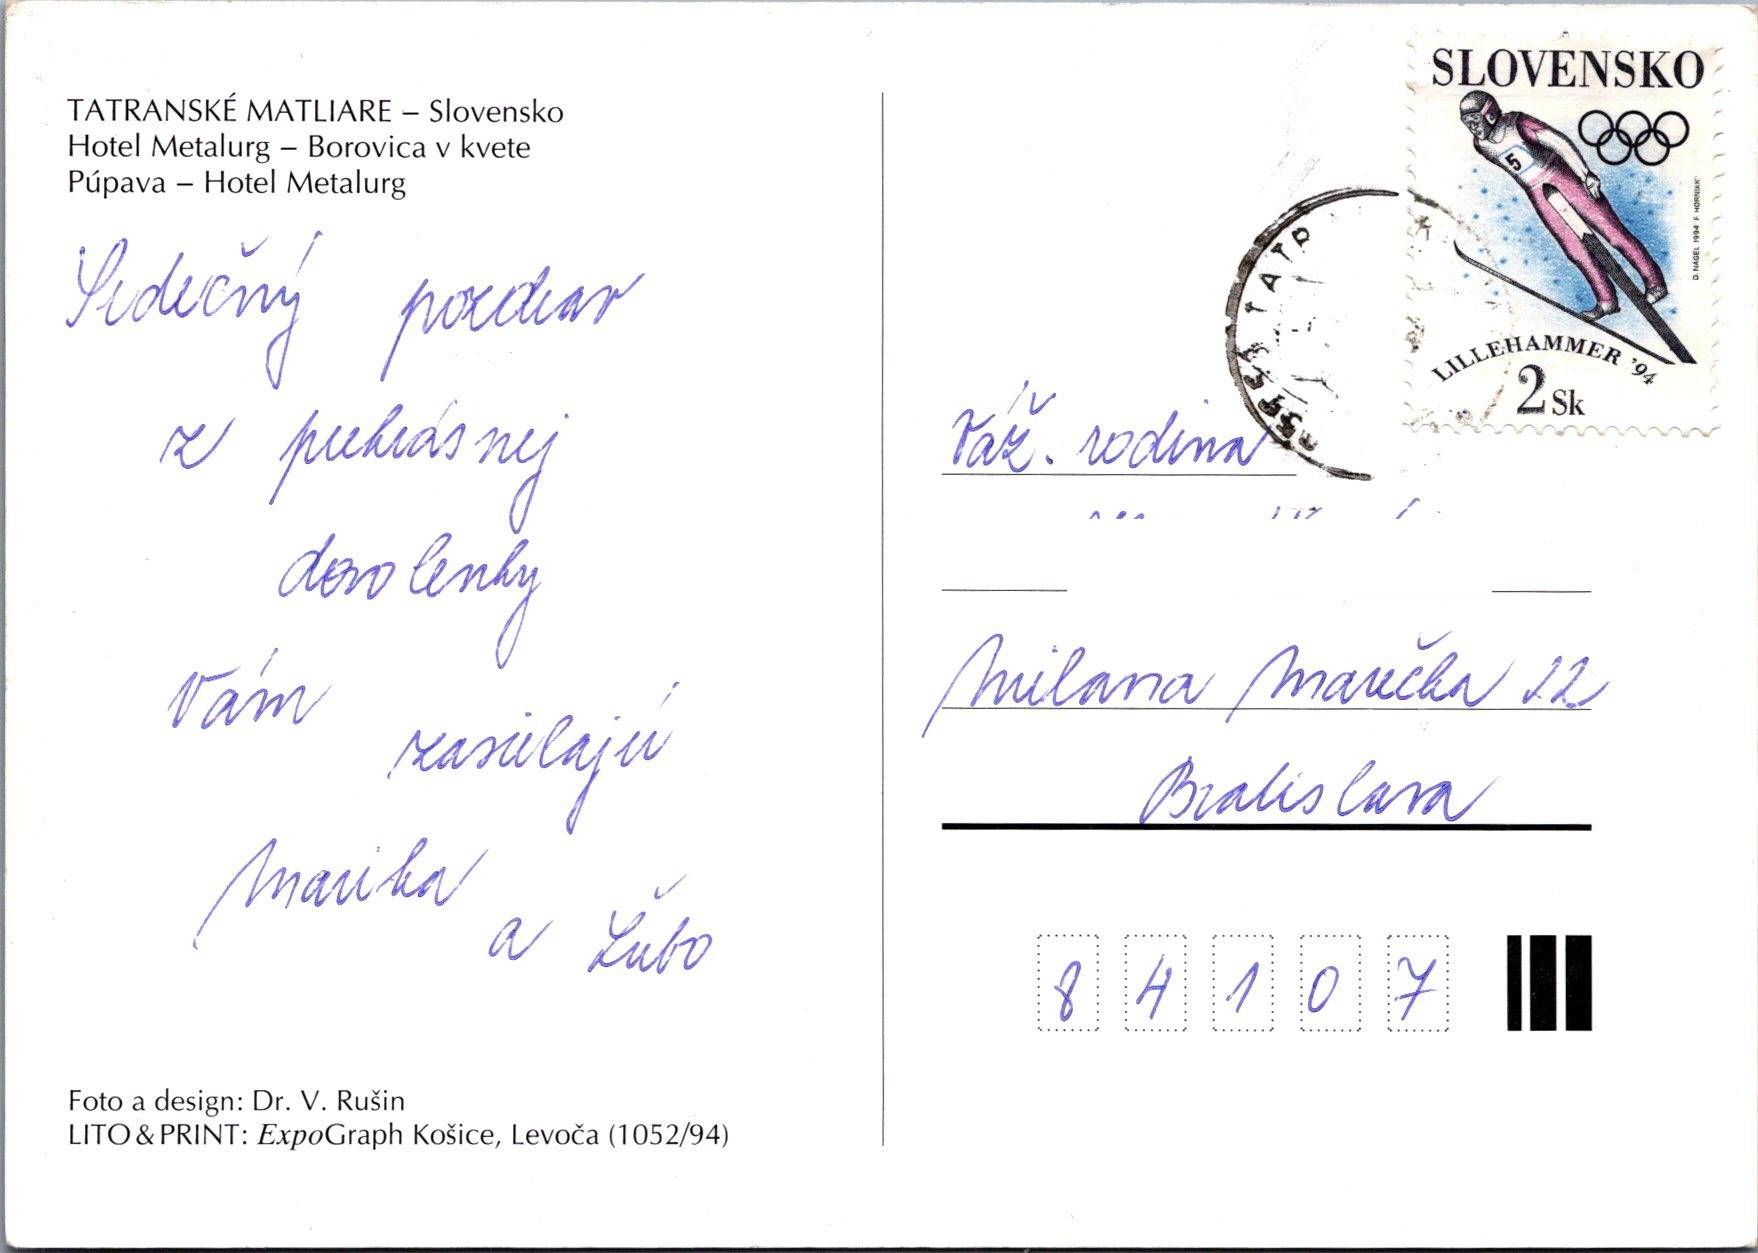 TATRANSKÉ MATLIARE – Slovensko
Hotel Metalurg – Borovica v kvete
Púpava – Hotel Metalurg
Srdečný pozdrav
z prekrásnej
dovolenky
Vám
zasielajú
Marika
a Ľubo
Foto a design: Dr. V. Rušin
LITO & PRINT: ExpoGraph Košice, Levoča (1052/94)
SLOVENSKO
5
D. NAGEL 1994 F. HORNIAK
LILLEHAMMER '94
2 Sk
Váž. rodina
Milana Marečka 22
Bratislava
84107